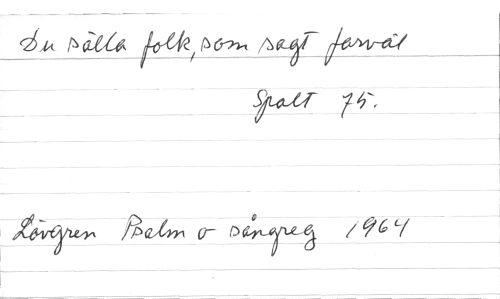 Du sälla folk, som sagt farväl
Spalt 75.
Lövgren Psalm o sångreg 1964